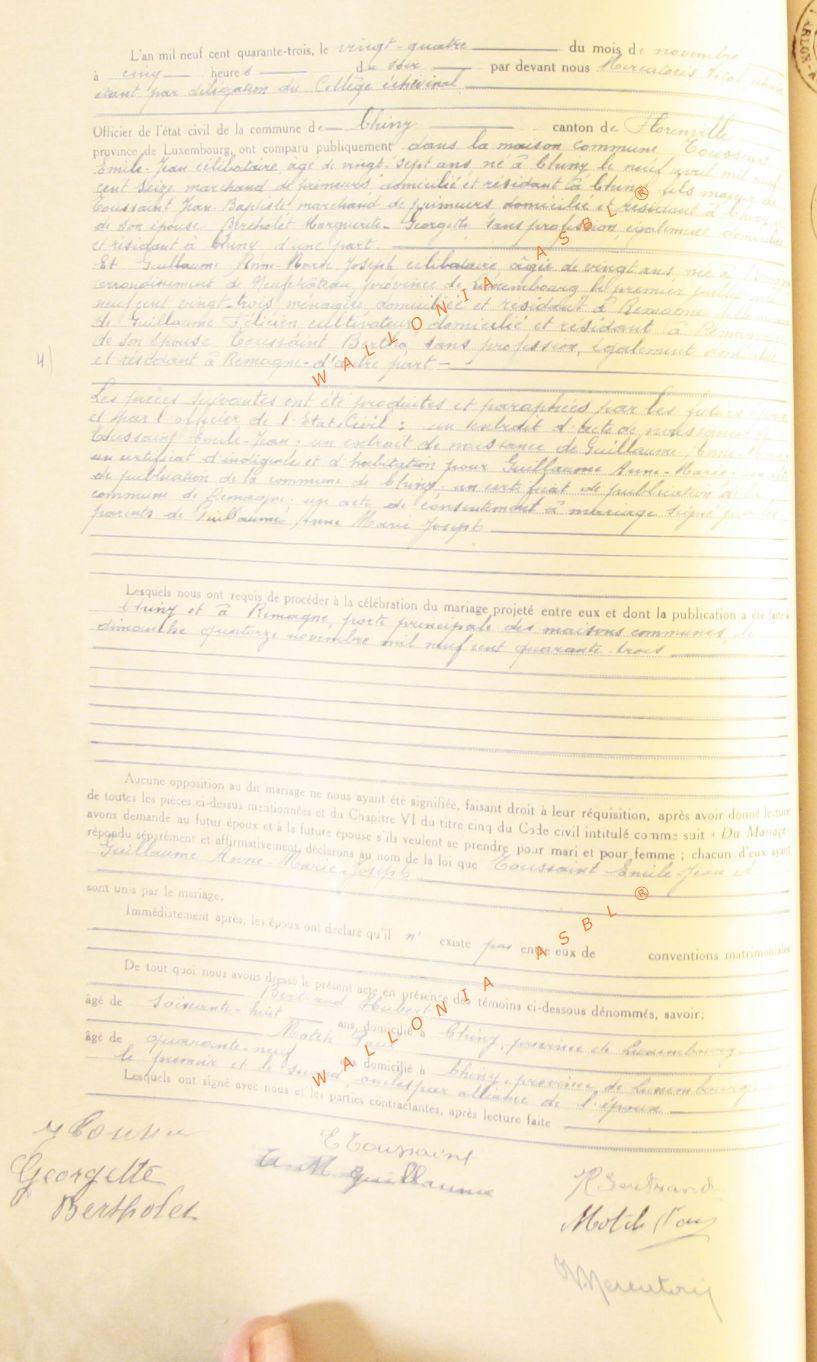 L'an mil neuf cent quarante-trois, le vingt-quatre du mois de novembre
à cinq heures du soir par devant nous Mercatoris
étant par délégation du Collège échevinal
Officier de l'état civil de la commune de Chiny canton de Florenville
province de Luxembourg, ont comparu publiquement dans la maison commune Toussaint
Emile-Jean célibataire, âgé de vingt-sept ans né à Chiny le neuf avril mil neuf
cent seize marchand de primeurs domicilié et résidant à Chiny, fils majeur de
Toussaint Jean-Baptiste marchand de primeurs domicilié et résidant à Chiny et
de son épouse Bertholet Marguerite-Georgette sans profession, également domiciliée
et résidant à Chiny d'une part.
Et Guillaume Anne-Marie Joseph célibataire, âgée de vingt ans née à
arrondissement de Neufchâteau, province de Luxembourg le premier
neuf cent vingt-trois ménagère domiciliée et résidant à Remagne fille
de Guillaume Félicien cultivateur domicilié et résidant à Remagne et
de son épouse Toussaint Bertha sans profession, également domiciliée
4) et résidant à Remagne-d'autre part-
Les pièces suivantes ont été produites et paraphées par les futurs
et par l'officier de l'Etat-Civil : un extrait d'acte de naissance
Toussaint Emile-Jean. un extrait de naissance de Guillaume Anne-Marie.
un certificat d'indigénat et d'habitation pour Guillaume Anne-Marie.
de publication de la commune de Chiny. un certificat de publication de la
commune de Remagne. un acte de consentement à mariage signé par les
parents de Guillaume Anne Marie Joseph
Lesquels nous ont requis de procéder à la célébration du mariage projeté entre eux et dont la publication a été faite à
Chiny et à Remagne, porte principale des maisons communes, le
dimanche quatorze novembre mil neuf cent quarante-trois
Aucune opposition au dit mariage ne nous ayant été signifiée, faisant droit à leur réquisition, après avoir donné lecture
de toutes les pièces ci-dessus mentionnées et du Chapitre VI du titre cinq du Code civil intitulé comme suit « Du Mariage
avons demandé au futur époux et à la future épouse s'ils veulent se prendre pour mari et pour femme ; chacun d'eux ayant
répondu séparément et affirmativement, déclarons au nom de la loi que Toussaint Emile Jean et
Guillaume Anne-Marie-Joseph
sont unis par le mariage.
Immédiatement après, les époux ont déclaré qu'il n' existe pas entre eux de conventions matrimoniales
De tout quoi nous avons dressé le présent acte en présence des témoins ci-dessous dénommés, savoir :
Bertrand Hubert
âgé de soixante-huit ans, domicilié à Chiny, province de Luxembourg
Motch Paul
âgé de quarante-neuf ans domicilié à Chiny, province de Luxembourg
le premier et le second, oncles par alliance de l'époux
Lesquels ont signé avec nous et les parties contractantes, après lecture faite
E Toussaint
Georgette
Bertholet
A. M. Guillaume
H Bertrand
Motch Paul
Mercatoris
WALLONIA ASBL ®
WALLONIA ASBL ®